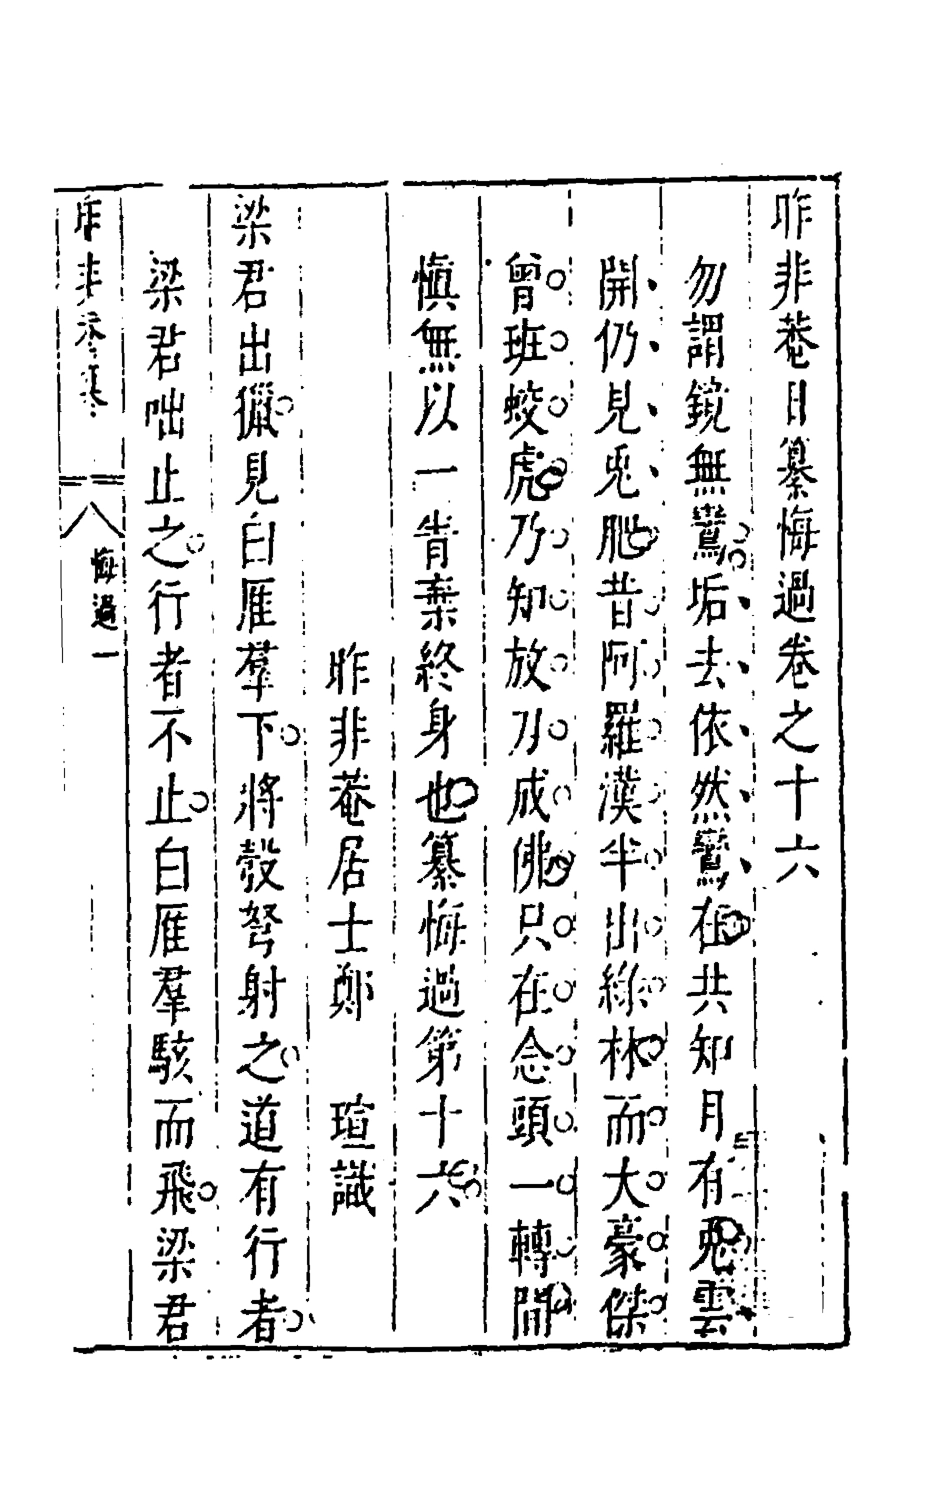 昨非菴日纂悔過卷之十六
勿謂鏡無鸞垢去依然鸞在共知月有兎雲
開仍見兎肥昔阿羅漢半出綠林而大豪傑
曾班蛟虎乃知放刀成佛只在念頭一轉間
慎無以一眚棄終身也纂悔過第十六
昨非菴居士鄭 瑄識
梁君出獵見白雁羣下將彀弩射之道有行者
梁君咄止之行者不止白雁羣駭而飛梁君
昨非菴纂
悔過一